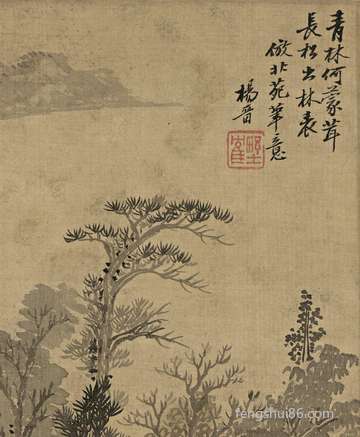 青林何蒙茸
長松出林表
倣北苑筆意
楊晋
fengshui86.com